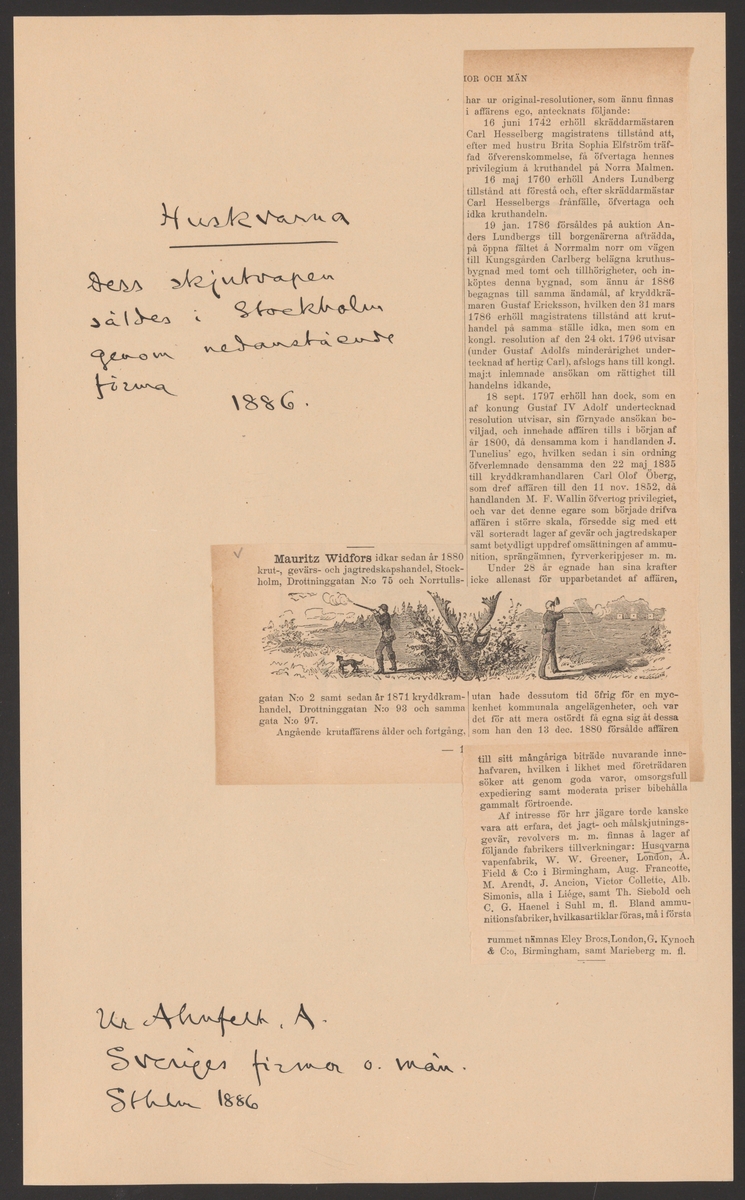 Huskvarna
Dess skjutvapen
såldes i Stockholm
genom nedanstående
firma
1886.
Mauritz Widfors idkar sedan år 1880
krut-, gevärs- och jagtredskapshandel, Stock-
holm, Drottninggatan N:o 75 och Norrtulls-
gatan N:o 2 samt sedan år 1871 kryddkram-
handel, Drottninggatan N:o 93 och samma
gata N:o 97.
Angående krutaffärens ålder och fortgång,
— 1
IOR OCH MÄN
har ur original-resolutioner, som ännu finnas
i affärens ego, antecknats följande:
16 juni 1742 erhöll skräddarmästaren
Carl Hesselberg magistratens tillstånd att,
efter med hustru Brita Sophia Elfström träf-
fad öfverenskommelse, få öfvertaga hennes
privilegium å kruthandel på Norra Malmen.
16 maj 1760 erhöll Anders Lundberg
tillstånd att förestå och, efter skräddarmästar
Carl Hesselbergs frånfälle, öfvertaga och
idka kruthandeln.
19 jan. 1786 försåldes på auktion An-
ders Lundbergs till borgenärerna afträdda,
på öppna fältet å Norrmalm norr om vägen
till Kungsgården Carlberg belägna kruthus-
bygnad med tomt och tillhörigheter, och in-
köptes denna bygnad, som ännu år 1886
begagnas till samma ändamål, af kryddkrä-
maren Gustaf Ericksson, hvilken den 31 mars
1786 erhöll magistratens tillstånd att krut-
handel på samma ställe idka, men som en
kongl. resolution af den 24 okt. 1796 utvisar
(under Gustaf Adolfs minderårighet under-
tecknad af hertig Carl), afslogs hans till kongl.
maj:t inlemnade ansökan om rättighet till
handelns idkande,
18 sept. 1797 erhöll han dock, som en
af konung Gustaf IV Adolf undertecknad
resolution utvisar, sin förnyade ansökan be-
viljad, och innehade affären tills i början af
år 1800, då densamma kom i handlanden J.
Tunelius' ego, hvilken sedan i sin ordning
öfverlemnade densamma den 22 maj 1835
till kryddkramhandlaren Carl Olof Öberg,
som dref affären till den 11 nov. 1852, då
handlanden M. F. Wallin öfvertog privilegiet,
och var det denne egare som började drifva
affären i större skala, försedde sig med ett
väl sorteradt lager af gevär och jagtredskaper
samt betydligt uppdref omsättningen af ammu-
nition, sprängämnen, fyrverkeripjeser m. m.
Under 28 år egnade han sina krafter
icke allenast för upparbetandet af affären,
utan hade dessutom tid öfrig för en myc-
kenhet kommunala angelägenheter, och var
det för att mera ostördt få egna sig åt dessa
som han den 13 dec. 1880 försålde affären
till sitt mångåriga biträde nuvarande inne-
hafvaren, hvilken i likhet med företrädaren
söker att genom goda varor, omsorgsfull
expediering samt moderata priser bibehålla
gammalt förtroende.
Af intresse för hrr jägare torde kanske
vara att erfara, det jagt- och målskjutnings-
gevär, revolvers m. m. finnas å lager af
följande fabrikers tillverkningar: Husqvarna
vapenfabrik, W. W. Greener, London, A.
Field & C:o i Birmingham, Aug. Francotte,
M. Arendt, J. Ancion, Victor Collette, Alb.
Simonis, alla i Liége, samt Th. Siebold och
C. G. Haenel i Suhl m. fl. Bland ammu-
nitionsfabriker, hvilkas artiklar föras, må i första
rummet nämnas Eley Bro:s, London, G. Kynoch
& C:o, Birmingham, samt Marieberg m. fl.
Ur Ahnfelt, A.
Sveriges firmor o. män.
Sthlm 1886